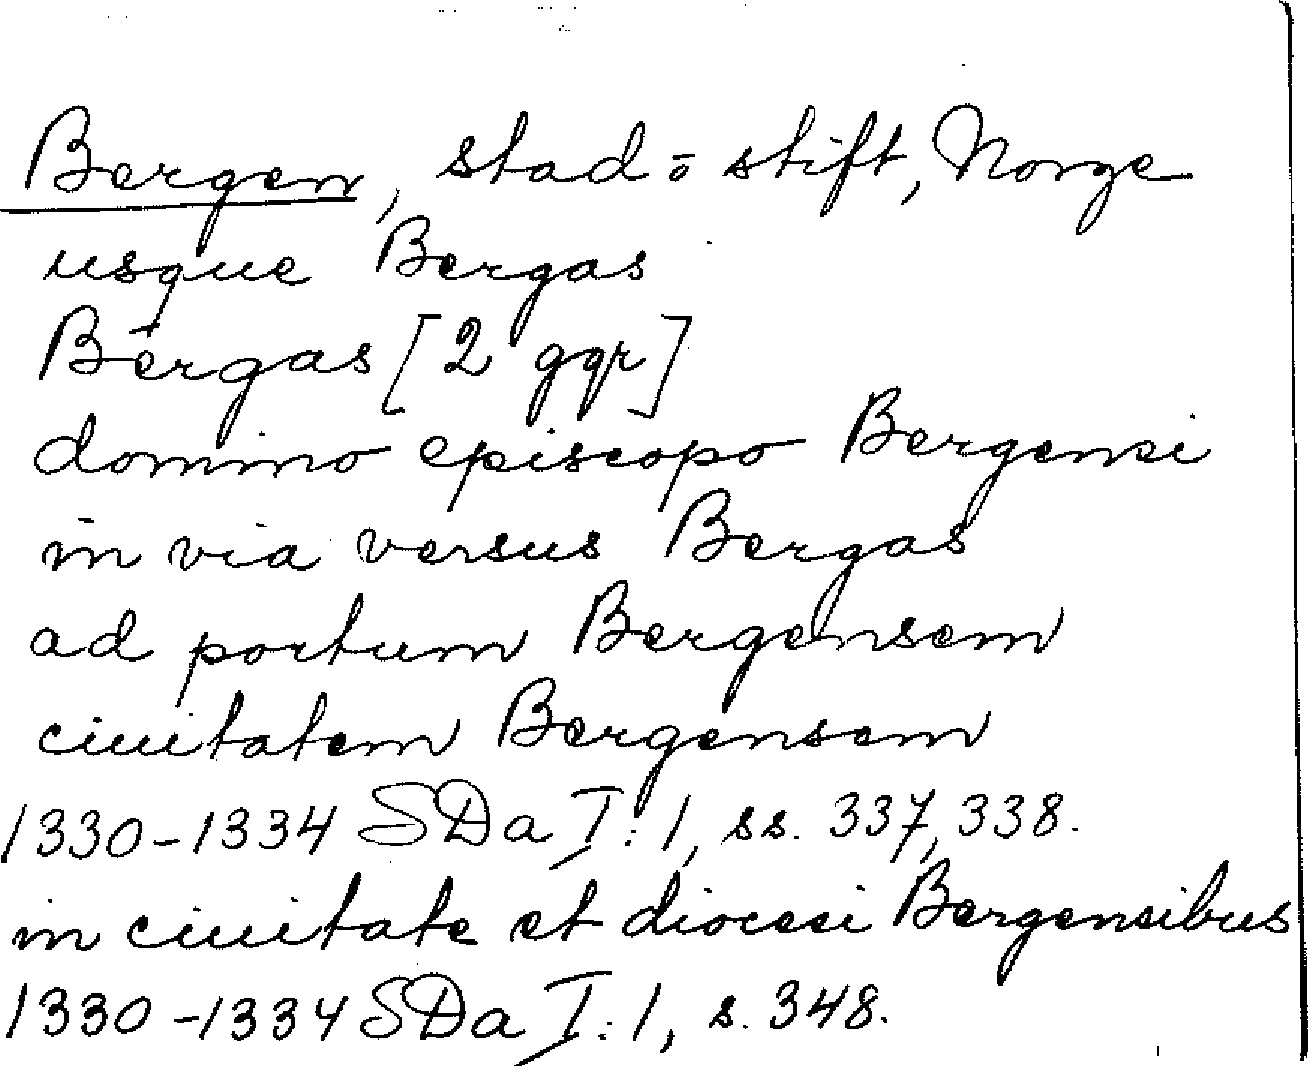 Bergen, stad o stift, Norge
usque Bergas
Bergas [2 ggr]
domino episcopo Bergensi
in via versus Bergas
ad portum Bergensem
ciuitatem Bergensem
1330-1334 SDa I:1, ss. 337, 338.
in ciuitate et diocesi Bergensibus
1330-1334 SDa I:1, s. 348.